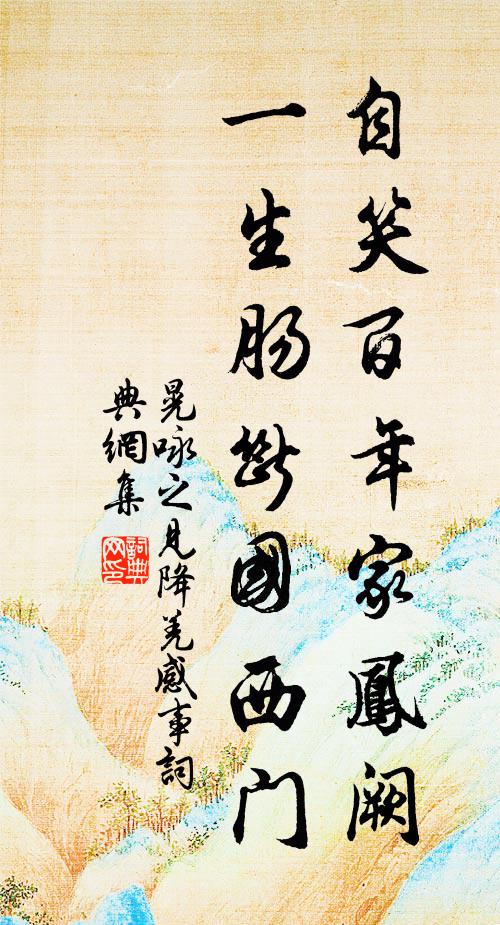 自笑百年家鳳闕
一生肠断國西门
晁咏之見降羌感事詞
典網集
詞典
网印